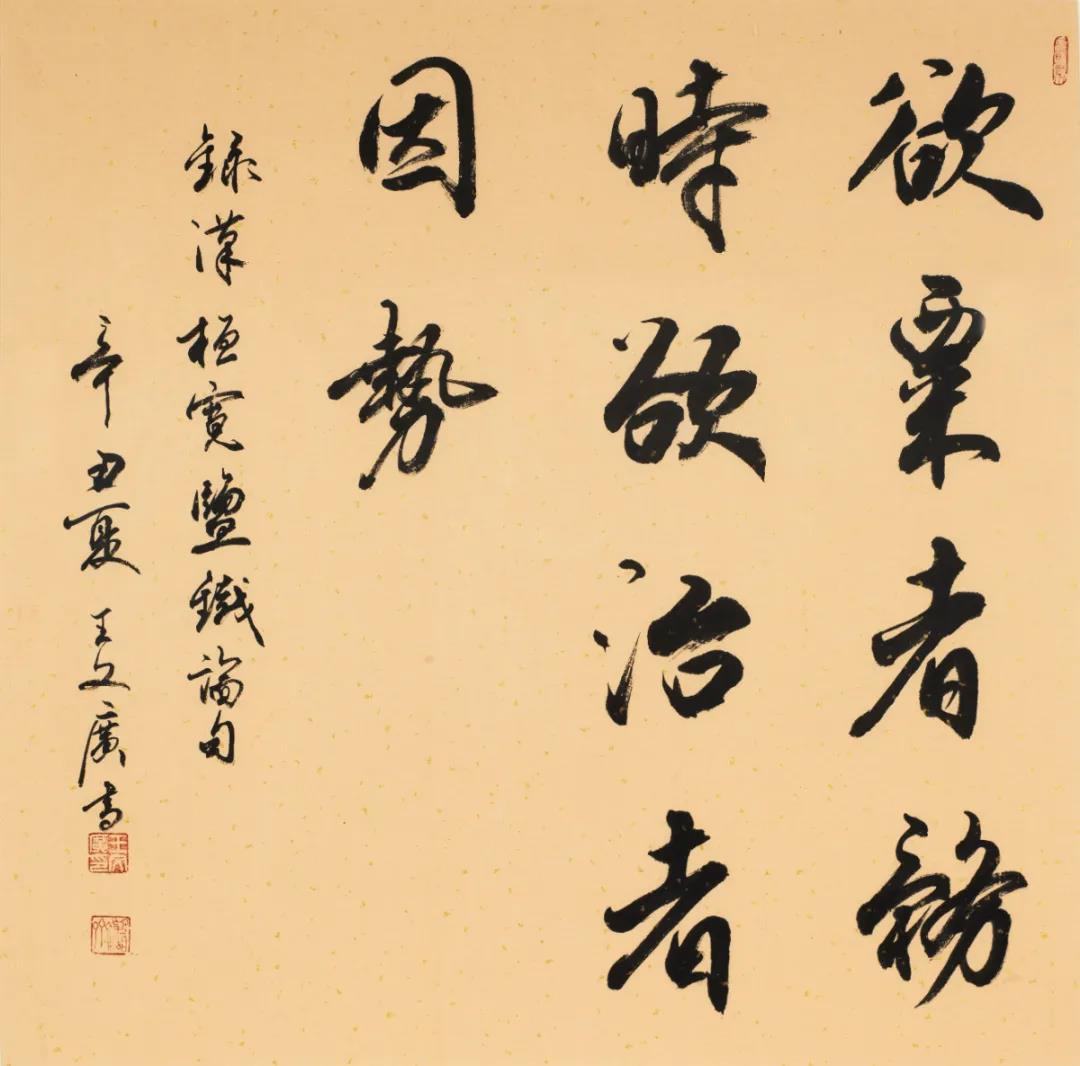 欲粟者務
時欲治者
因勢
錄漢桓寬鹽鐵論句
辛丑夏王文廣書